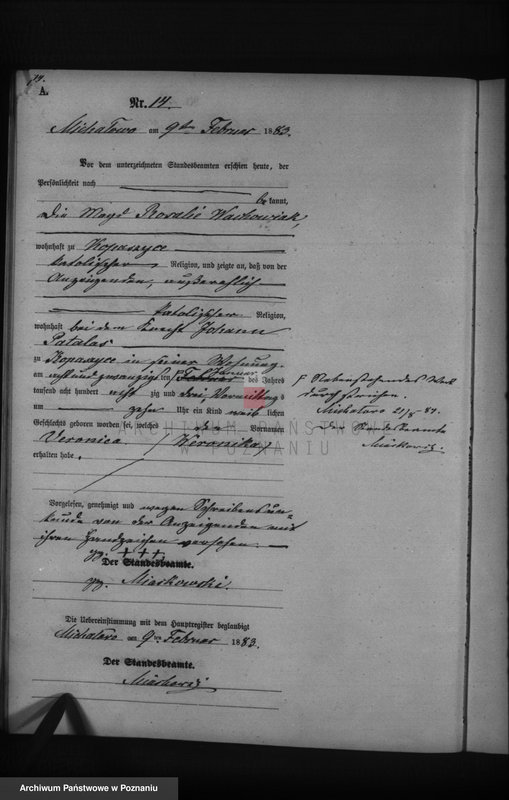 14.
A.
Nr. 14.
Michalowo am 9ten Februar 1883.
Vor dem unterzeichneten Standesbeamten erschien heute, der
Persönlichkeit nach
be kannt,
die Magd Rosalie Wachowiak,
wohnhaft zu Kopaszyce
katolischer Religion, und zeigte an, daß von der
Anzeigenden, außerehlich
katolischer Religion,
wohnhaft bei dem Knecht Johann
Patalas
zu Kopaszyce in seiner Wohnung
am achtundzwanzigsten Februar Januar des Jahres
tausend acht hundert acht zig und drei, Vormittags
um zehn Uhr ein Kind weib lichen
Geschlechts geboren worden sei, welches den Vornamen
Veronica /Weronika/
erhalten habe.
Nebenstehendes Wort
durchstrichen.
Michalowo
Der Standesbeamte
Miaskowski.
Vorgelesen, genehmigt und wegen Schreibensun-
kunde von der Anzeigenden mit
ihren Handzeichen versehen.
gez. +++
Der Standesbeamte.
gez. Miaskowski.
Die Uebereinstimmung mit dem Hauptregister beglaubigt
Michalowo am 9ten Februar 1883.
Der Standesbeamte.
Miaskowski
ARCHIWUM PAŃSTWOWE
W POZNANIU
Archiwum Państwowe w Poznaniu